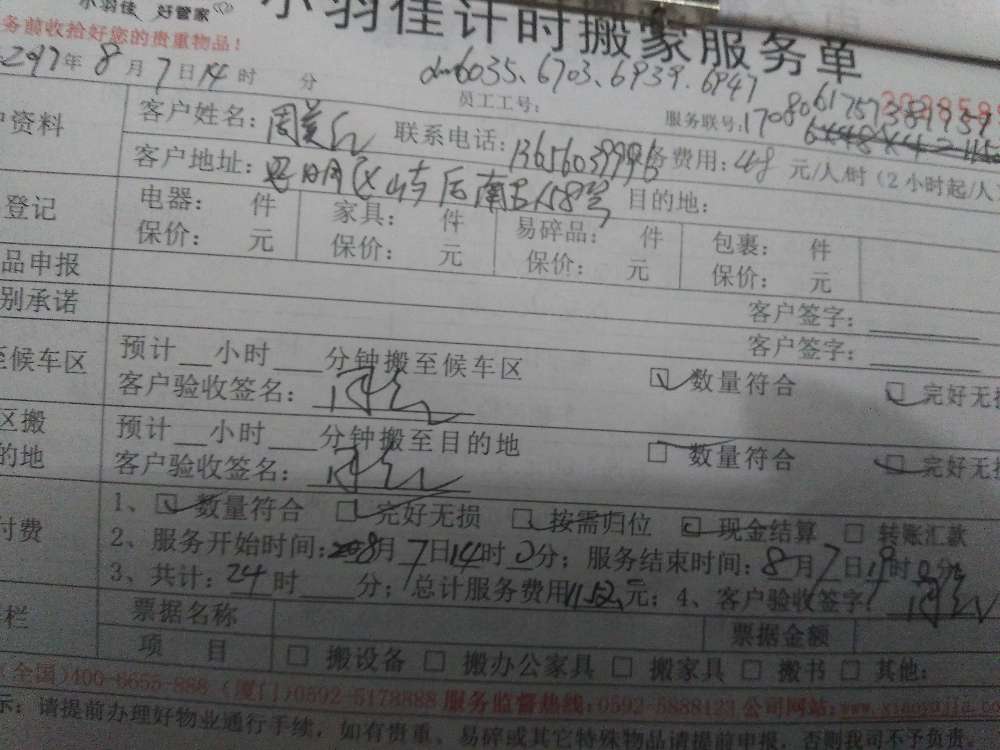 小羽佳 好管家
小羽佳计时搬家服务单
务前收拾好您的贵重物品!
2017年8月7日14时 分
员工工号: 6035、6703、6939、6947
服务联号:
户资料 客户姓名: 联系电话: 务费用:48元/人/时(2小时起/人
客户地址: 目的地:
登记 电器: 件 家具: 件 易碎品: 件 包裹: 件
保价: 元 保价: 元 保价: 元 保价: 元
品申报 客户签字:
别承诺 客户签字:
至候车区 预计__小时___分钟搬至候车区 数量符合 完好无损
客户验收签名:
区搬 预计__小时___分钟搬至目的地 数量符合 完好无损
的地 客户验收签名:
付费 1、数量符合 完好无损 按需归位 现金结算 转账汇款
2、服务开始时间:8月7日14时0分; 服务结束时间:8月7日 时0分
3、共计:24时___分;总计服务费用1152元;4、客户验收签字:
栏 票据名称 票据金额
项 目 搬设备 搬办公家具 搬家具 搬书 其他:
(全国)400-6655-888 (厦门)0592-5178888 服务监督热线:0592-5888123 公司网站:
示:请提前办理好物业通行手续,如有贵重、易碎或其它特殊物品请提前申报,否则我司不予负责。